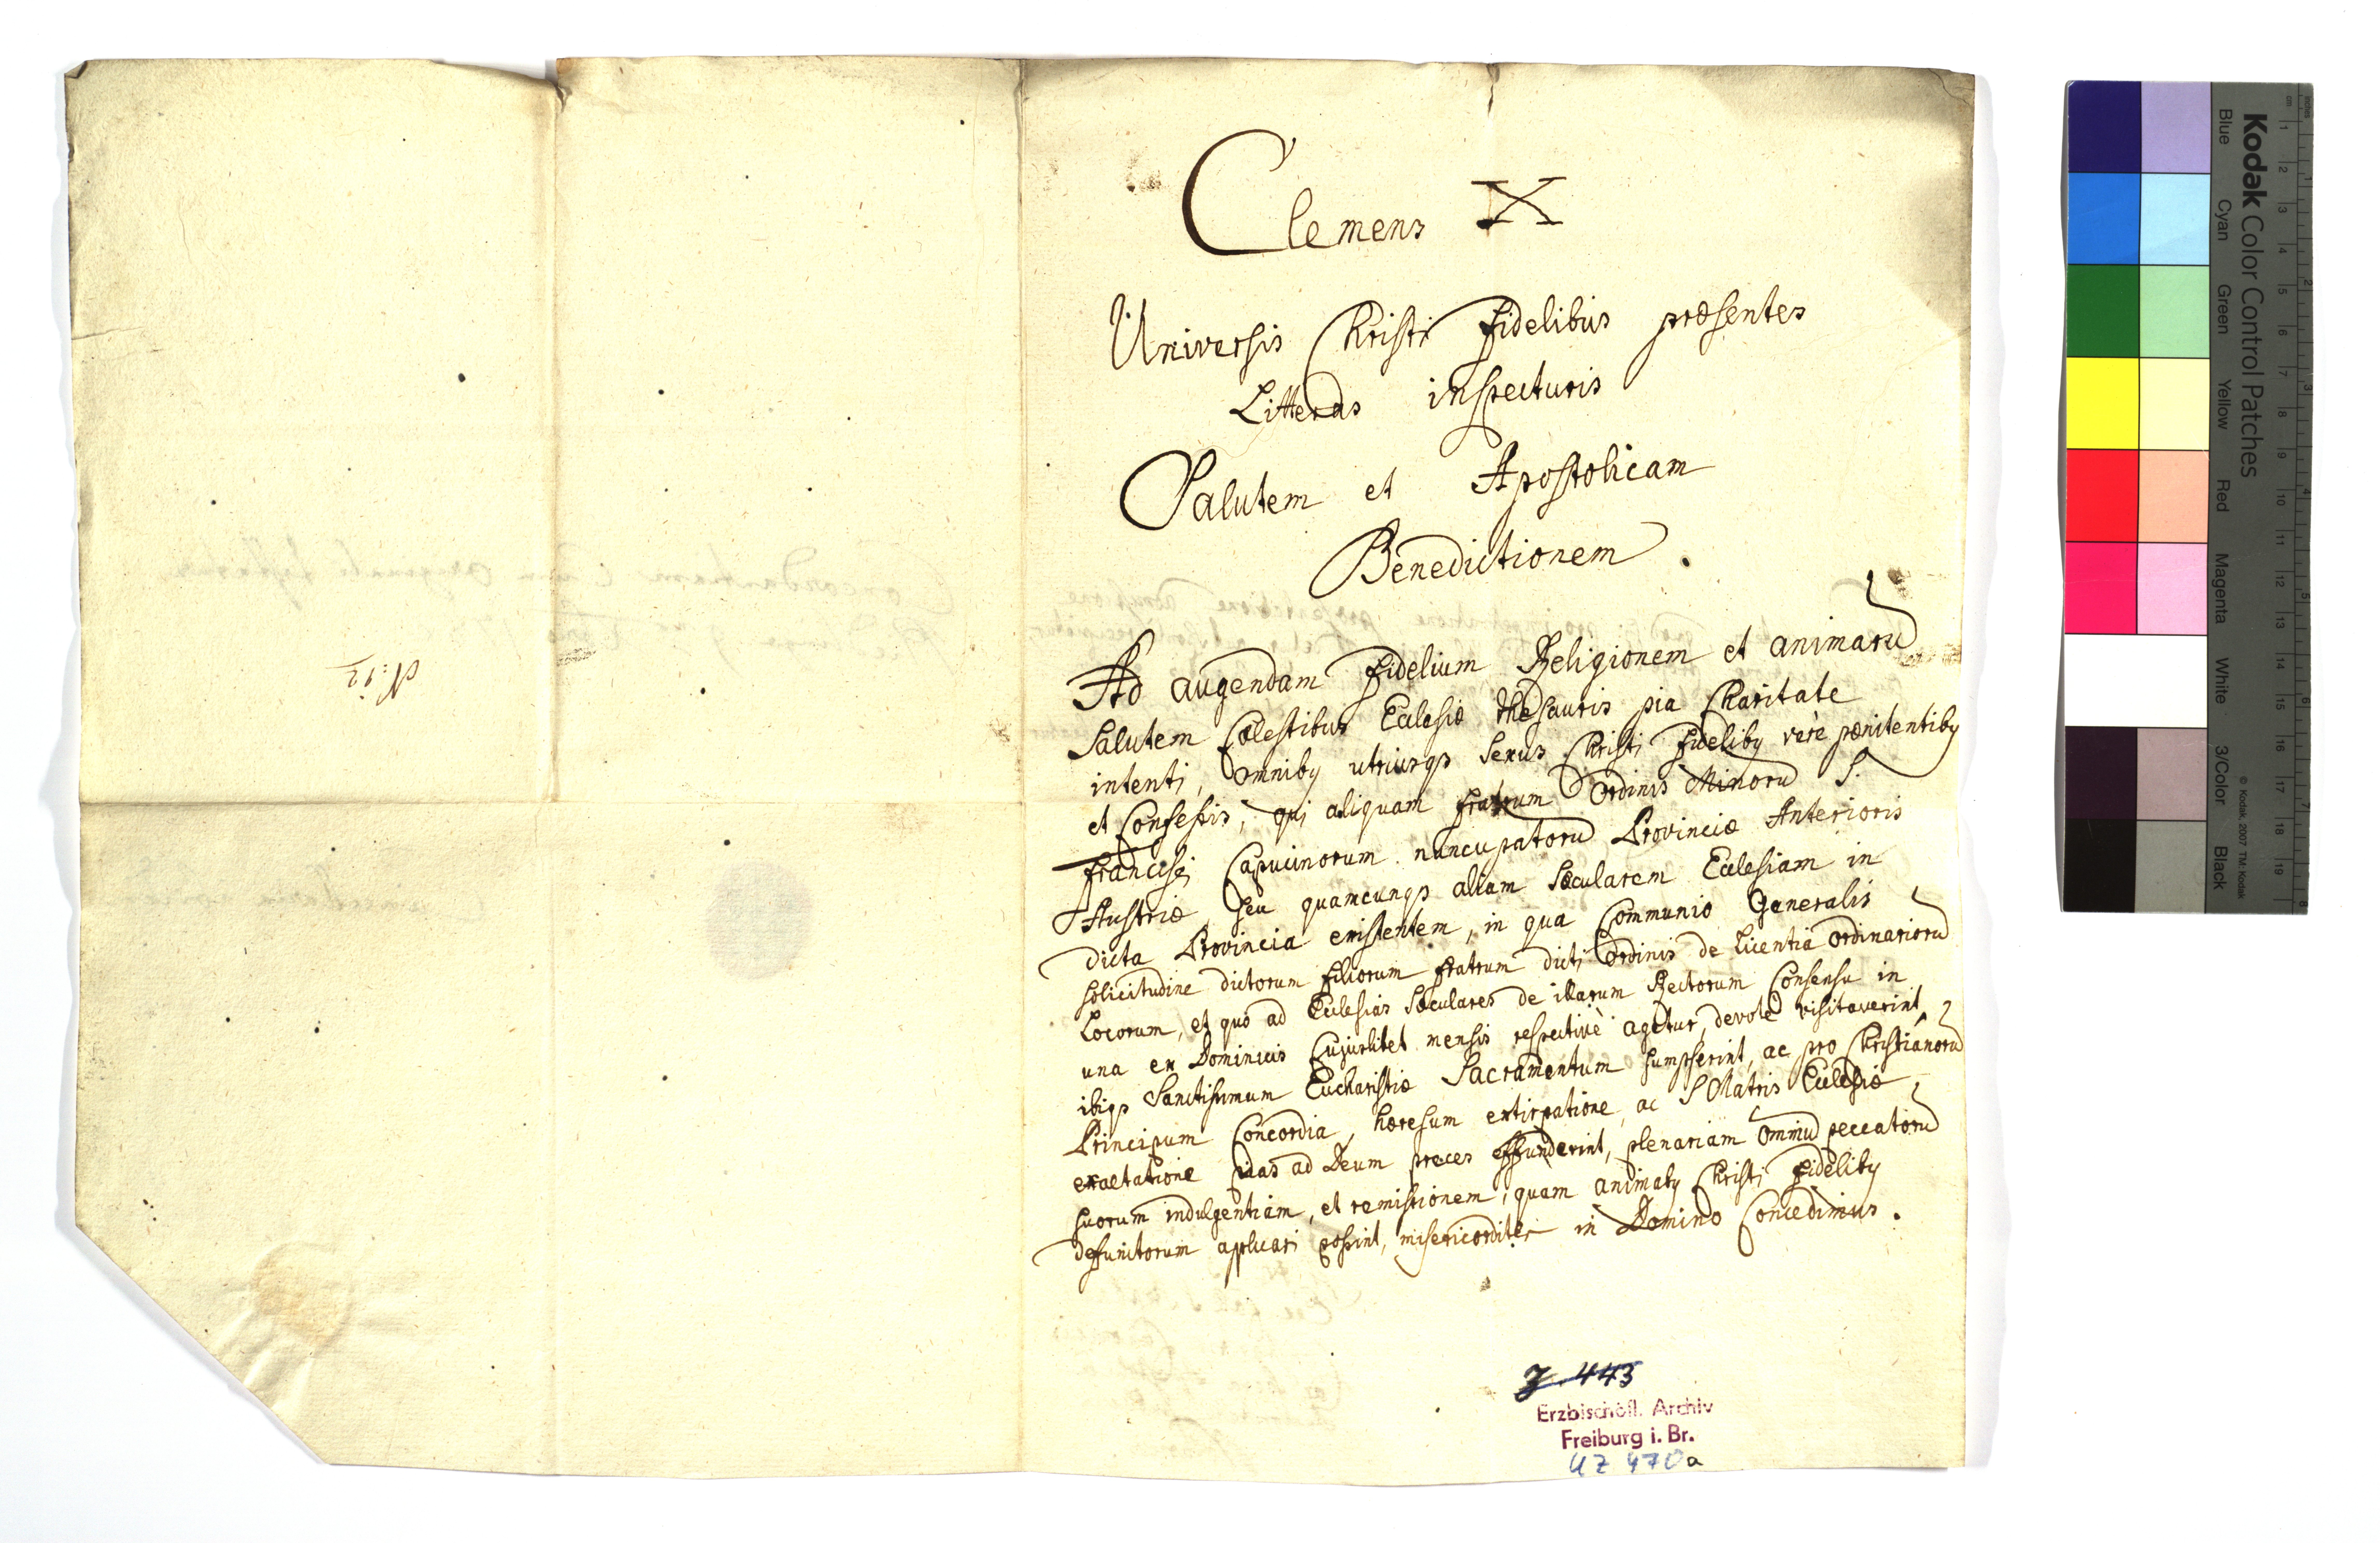 Clemens X
Universis Christi fidelibus præsentes
Litteras inspecturis
Salutem et Apostolicam
Benedictionem.
Ad augendam fidelium Religionem et animarū
salutem Cœlestibus Ecclesiæ thesauris pia Charitate
intenti, omnibꝰ utriusqꝫ sexus Christi fidelibꝰ verè pænitentibꝰ
et Confessis, qui aliquam fratrum Ordinis Minorū S.
Francisci Capucinorum nuncupatorū Provinciæ Anterioris
Austriæ, seu quamcunqꝫ aliam sæcularem Ecclesiam in
dicta Provincia existentem, in qua Communio Generalis
solicitudine dictorum filiorum fratrum dicti Ordinis de licentia ordinariorū
Locorum, et quo ad Ecclesias sæculares de illarum Rectorum Consensu in
una ex Dominicis Cujuslibet mensis respectivè agetur, devotè visitaverint,
ibiqꝫ Sanctissimum Eucharistiæ Sacramentum sumpserint, ac pro Christianorū
Principum Concordia, hæresum extirpatione, ac S Matris Ecclesiæ
exaltatione pias ad Deum preces effunderint, plenariam omniū peccatorū
suorum indulgentiam, et remissionem, quam animabꝰ Christi fidelibꝰ
defunctorum applicari possint, misericorditer in Domino Concedimus.
N: 12
J 443
Erzbischöfl. Archiv
Freiburg i. Br.
UZ 470a
Kodak Color Control Patches
Blue Cyan Green Yellow Red Magenta White 3/Color Black
© Kodak, 2007 TM: Kodak
inches 1 2 3 4 5 6 7 8
cm 1 2 3 4 5 6 7 8 9 10 11 12 13 14 15 16 17 18 19